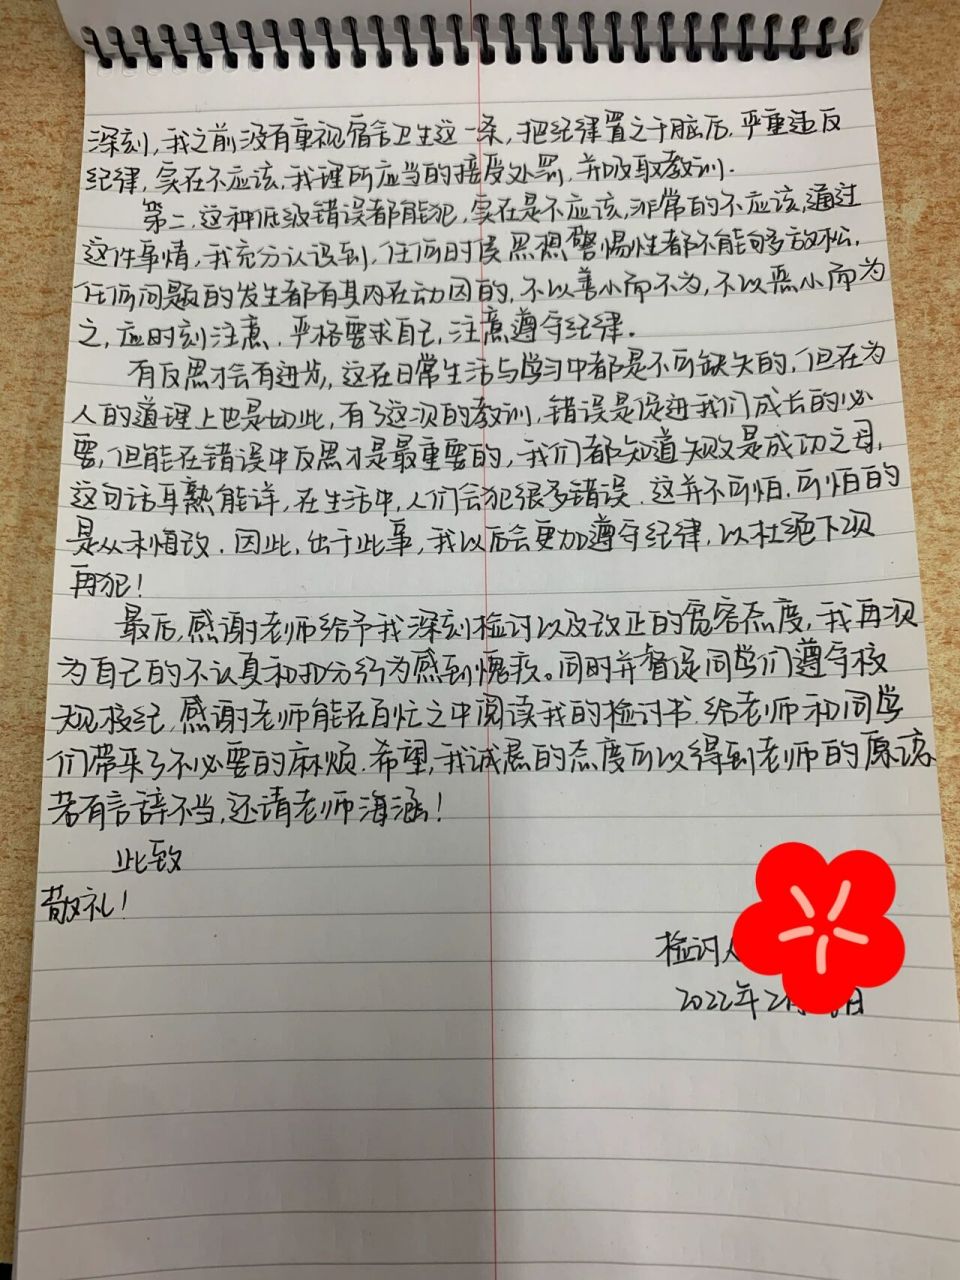 深刻，我之前没有重视宿舍卫生这一条，把纪律置之于脑后，严重违反
纪律，实在不应该，我理所应当的接受处罚，并吸取教训.
第二，这种低级错误都能犯，实在是不应该，非常的不应该，通过
这件事情，我充分认识到，任何时候思想警惕性都不能够放松，
任何问题的发生都有其内在动因的，不以善小而不为，不以恶小而为
之，应时刻注意，严格要求自己，注意遵守纪律.
有反思才会有进步，这在日常生活与学习中都是不可缺失的，但在为
人的道理上也是如此，有了这次的教训，错误是促进我们成长的必
要，但能在错误中反思才是最重要的，我们都知道失败是成功之母，
这句话耳熟能详，在生活中，人们会犯很多错误，这并不可怕，可怕的
是从未悔改，因此，出于此事，我以后会更加遵守纪律，以杜绝下次
再犯！
最后，感谢老师给予我深刻检讨以及改正的宽容态度，我再次
为自己的不认真和扣分行为感到愧疚。同时并督促同学们遵守校
规校纪，感谢老师能在百忙之中阅读我的检讨书，给老师和同学
们带来了不必要的麻烦，希望，我诚恳的态度可以得到老师的原谅，
若有言辞不当，还请老师海涵！
此致
敬礼！
检讨人
2022年2月 日